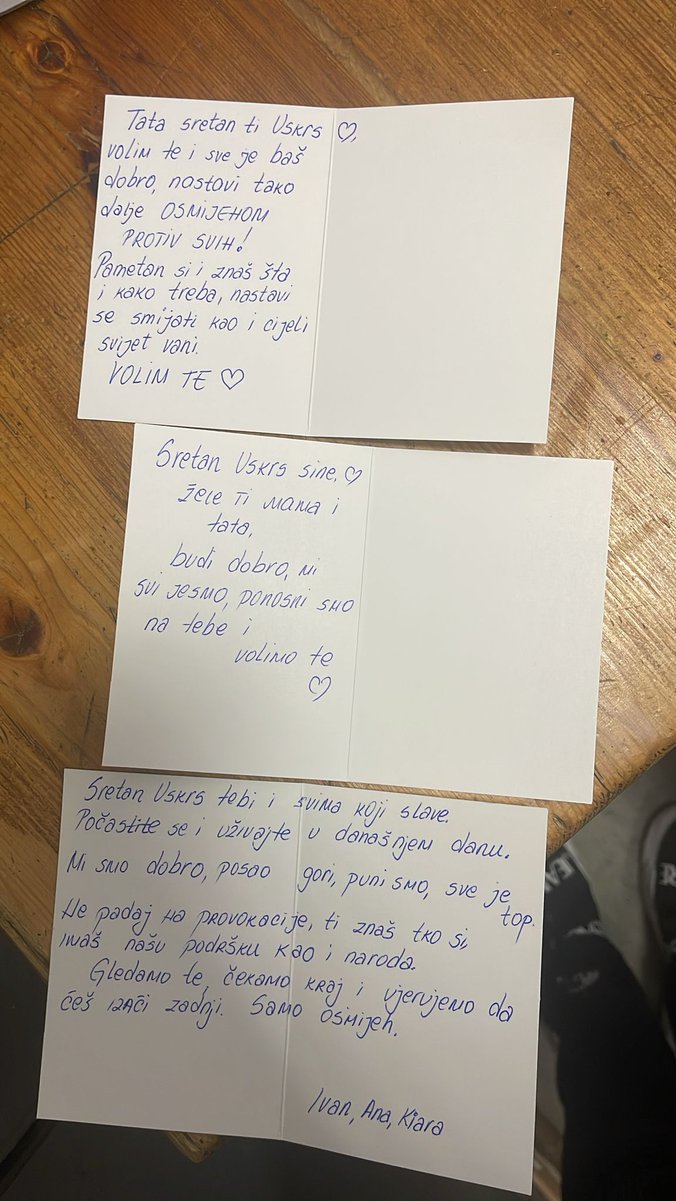 Tata sretan ti Uskrs ♡,
volim te i sve je baš
dobro, nastavi tako
dalje OSMIJEHOM
PROTIV SVIH!
Pametan si i znaš šta
i kako treba, nastavi
se smijati kao i cijeli
svijet vani.
VOLIM TE ♡
Sretan Uskrs sine, ♡
žele ti mama i
tata,
budi dobro, mi
svi jesmo, ponosni smo
na tebe i
volimo te
♡
Sretan Uskrs tebi i svima koji slave.
Počastite se i uživajte u današnjem danu.
Mi smo dobro, posao gori, puni smo, sve je
top.
Ne padaj na provokacije, ti znaš tko si,
imaš našu podršku kao i naroda.
Gledamo te, čekamo kraj i vjerujemo da
ćeš izaći zadnji. Samo osmijeh.
Ivan, Ana, Kiara